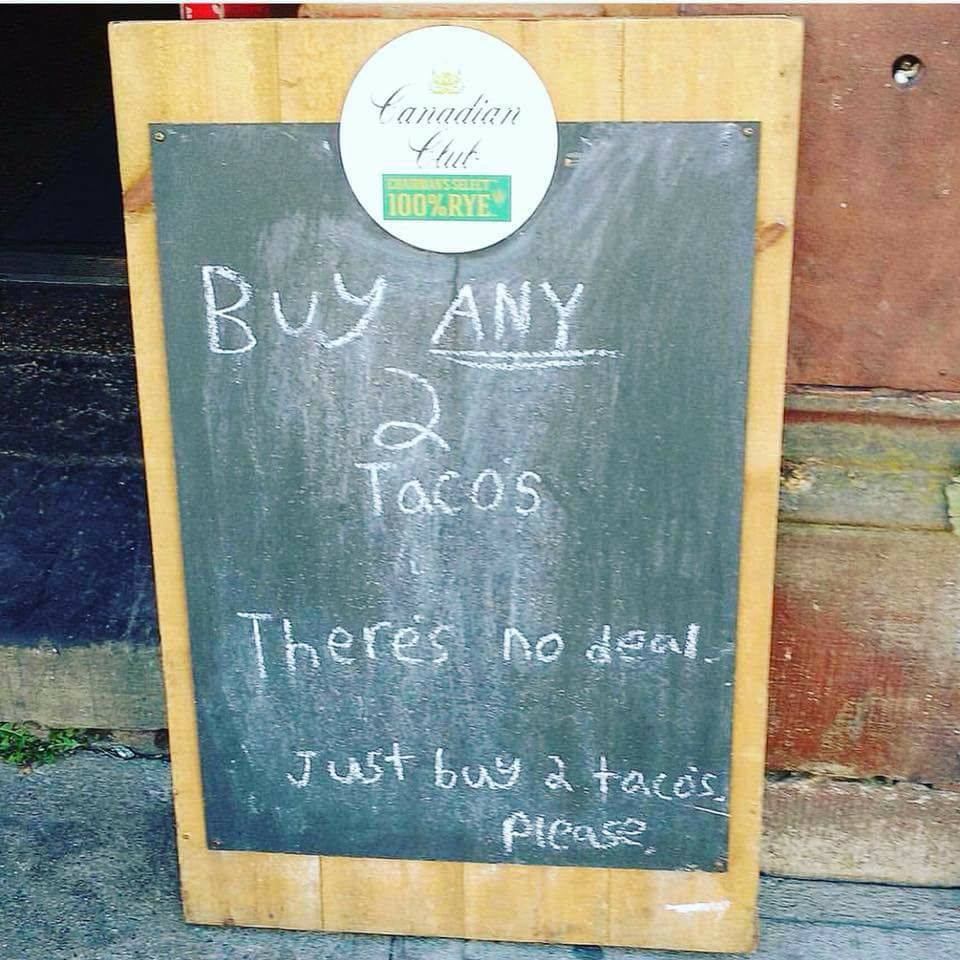 Canadian
Club
CHAIRMAN'S SELECT
100% RYE
BUY ANY
2
Taco's
There's no deal.
Just buy 2 taco's,
please.